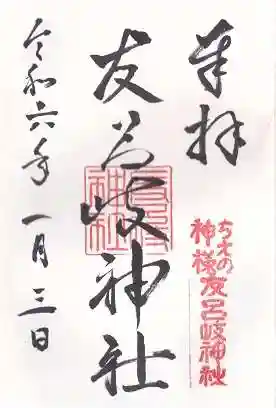 奉拝
ちえの
神様友呂岐神社
友呂岐神社
令和六年一月三日